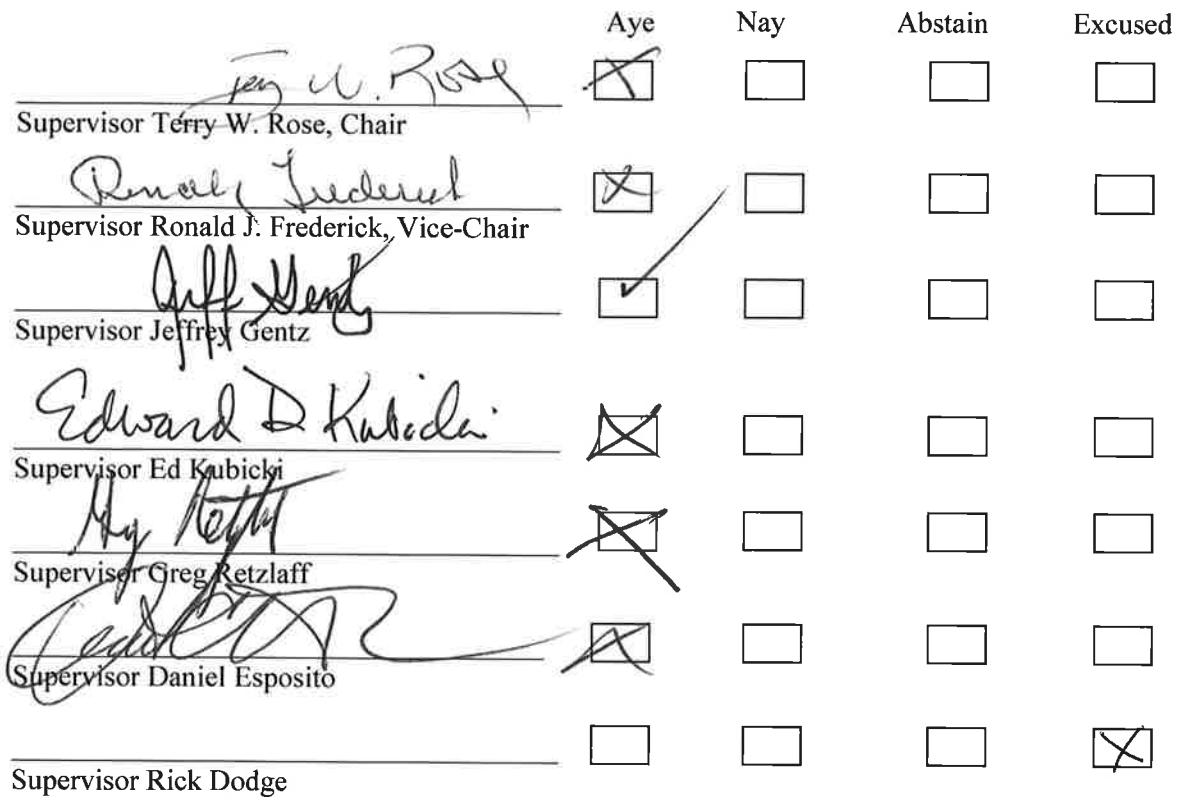 Aye Nay Abstain Excused
Terry W. Rose
Supervisor Terry W. Rose, Chair
Ronald Frederick
Supervisor Ronald J. Frederick, Vice-Chair
Jeff Gentz
Supervisor Jeffrey Gentz
Edward D Kubicki
Supervisor Ed Kubicki
Supervisor Greg Retzlaff
Supervisor Daniel Esposito
Supervisor Rick Dodge